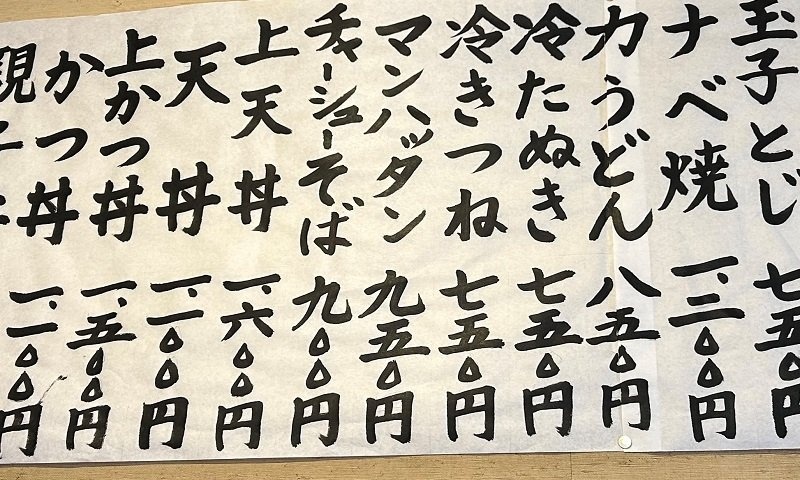 玉子とじ 七五〇円
ナベ焼 一、三〇〇円
力うどん 八五〇円
冷たぬき 七五〇円
冷きつね 七五〇円
マンハッダン 九五〇円
チャーシューそば 九〇〇円
上天丼 一、六〇〇円
天丼 一、一〇〇円
上かつ丼 一、五〇〇円
かつ丼 一、一〇〇円
親子